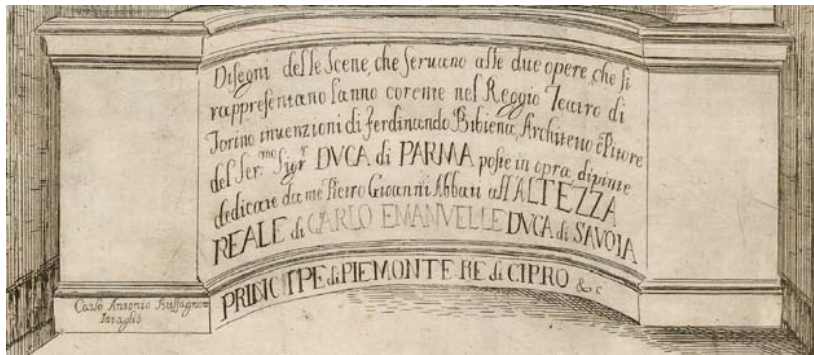 Disegni delle Scene, che seruano alle due opere, che si
rappresentano lanno corente nel Reggio Teatro di
Torino inuenzioni di ferdinando Bibiena, Architetto e Pitore
del Ser.mo Sigr. DVCA di PARMA poste in opra, dipinte
dedicate da me Pietro Giouanni Abbati all ALTEZZA
REALE di CARLO EMANVELLE DVCA di SAVOIA
PRINCIPE di PIEMONTE RE di CIPRO &c
Carlo Antonio Buffagnoti
Intaglio